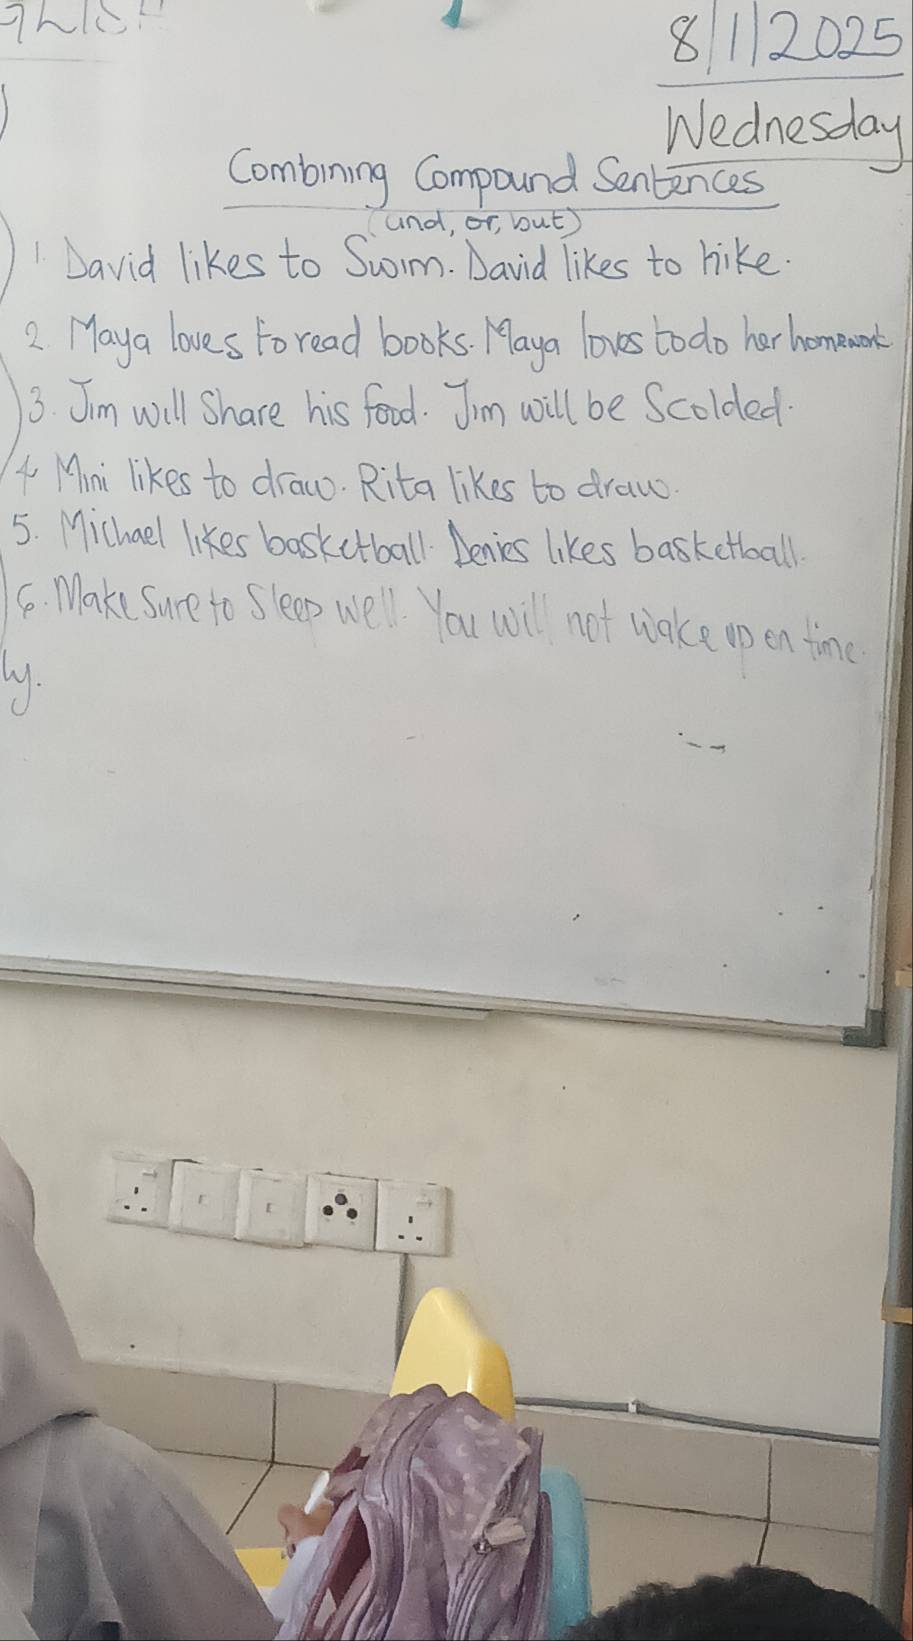 8/1/2025
Wednesday
Combining Compound Sentences
(and, or, but)
1. David likes to Swim. David likes to hike.
2. Maya loves to read books. Maya loves to do her homework
3. Jim will Share his food. Jim will be Scolded.
4 Mini likes to draw. Rita likes to draw.
5. Michael likes basketball. Denies likes basketball.
6. Make Sure to Sleep well. You will not wake up on time.
ly.